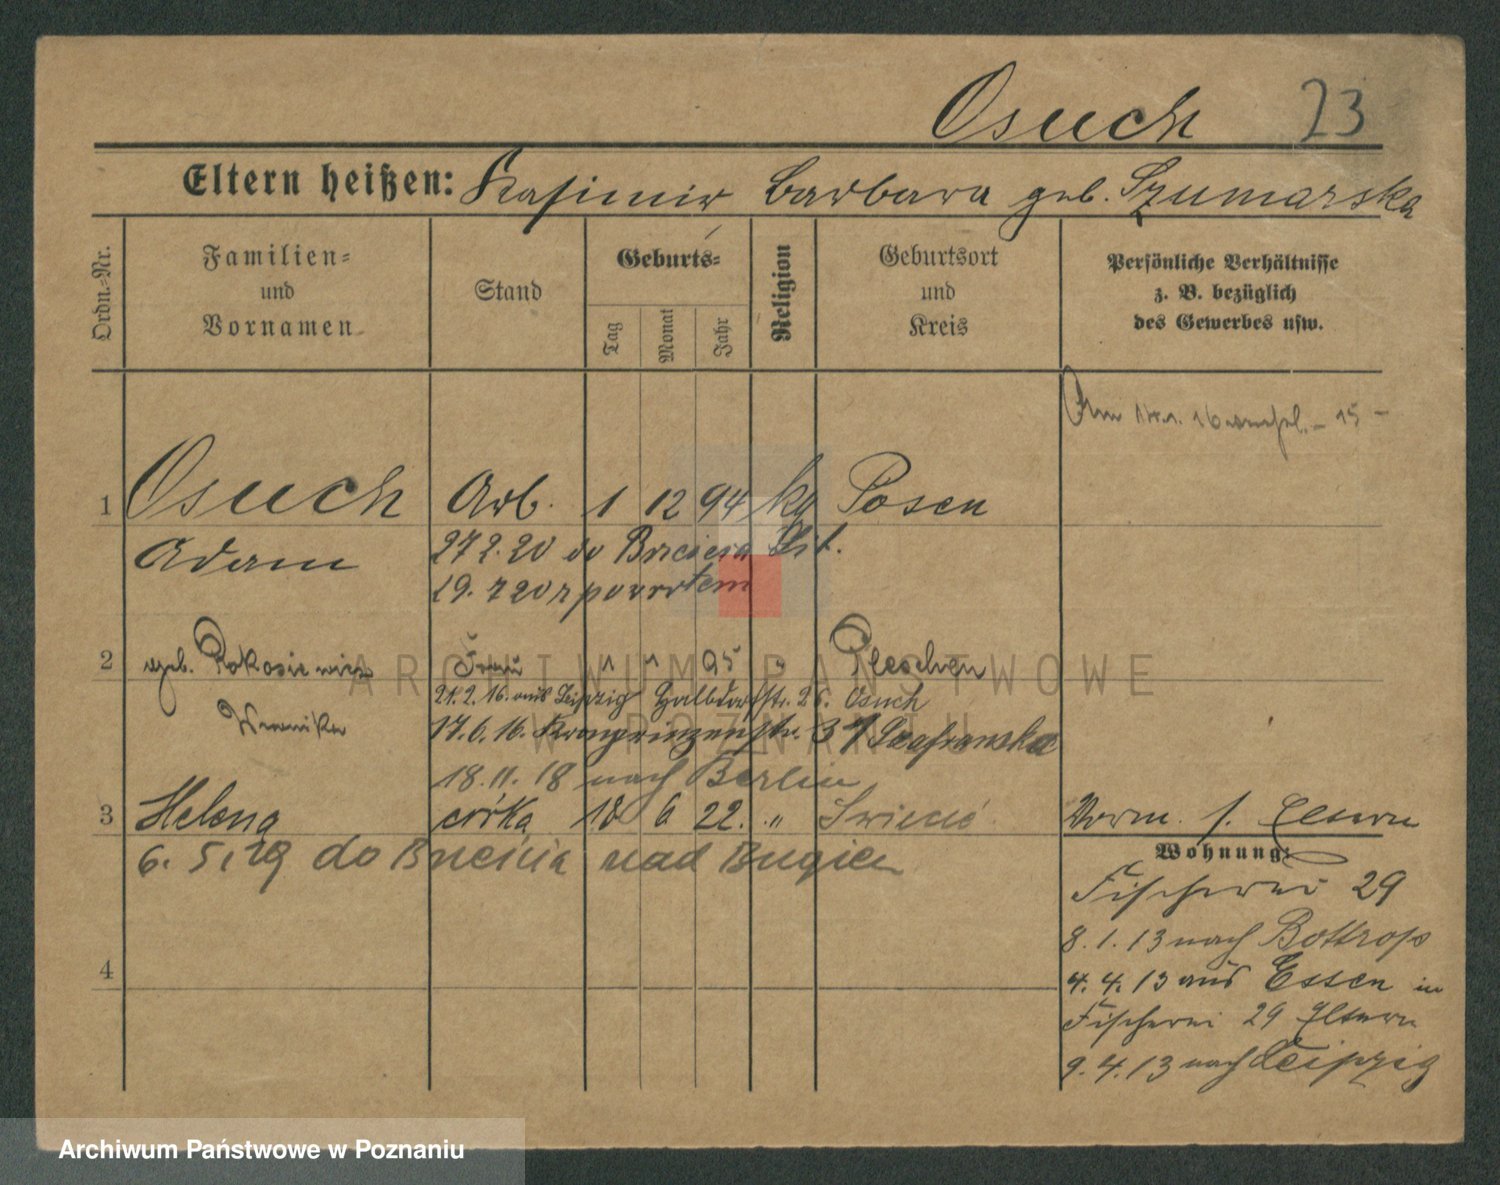 Osuch 23
Eltern heißen: Kasimir Barbara geb. Szumarska
Ordn.=Nr.
Familien=
und
Vornamen
Stand
Geburts=
Tag
Monat
Jahr
Religion
Geburtsort
und
Kreis
Persönliche Verhältnisse
z. B. bezüglich
des Gewerbes usw.
1 Osuch Arb. 1 12 94 kg Posen
Adam 27 2. 20 do Brześcia Lit.
19. 7 20 z powrotem
2 geb. Frau 1 1 95 " Pleschen
21. 2. 16. aus Leipzig Halbdorfstr. 26. Osuch
17. 6. 16. Kronprinzenstr. 37 Szafranska
18. 11. 18 nach Berlin
3 Helena córka 18 6 22. " Vorm. s. Eltern
6. 5. 29 do Brześcia nad Bugiem
4
Wohnung:
Fischerei 29
8. 1. 13 nach Bottrop
4. 4. 13 aus Essen in
Fischerei 29 Eltern
9. 4. 13 nach Leipzig
ARCHIWUM PAŃSTWOWE
W POZNANIU
Archiwum Państwowe w Poznaniu